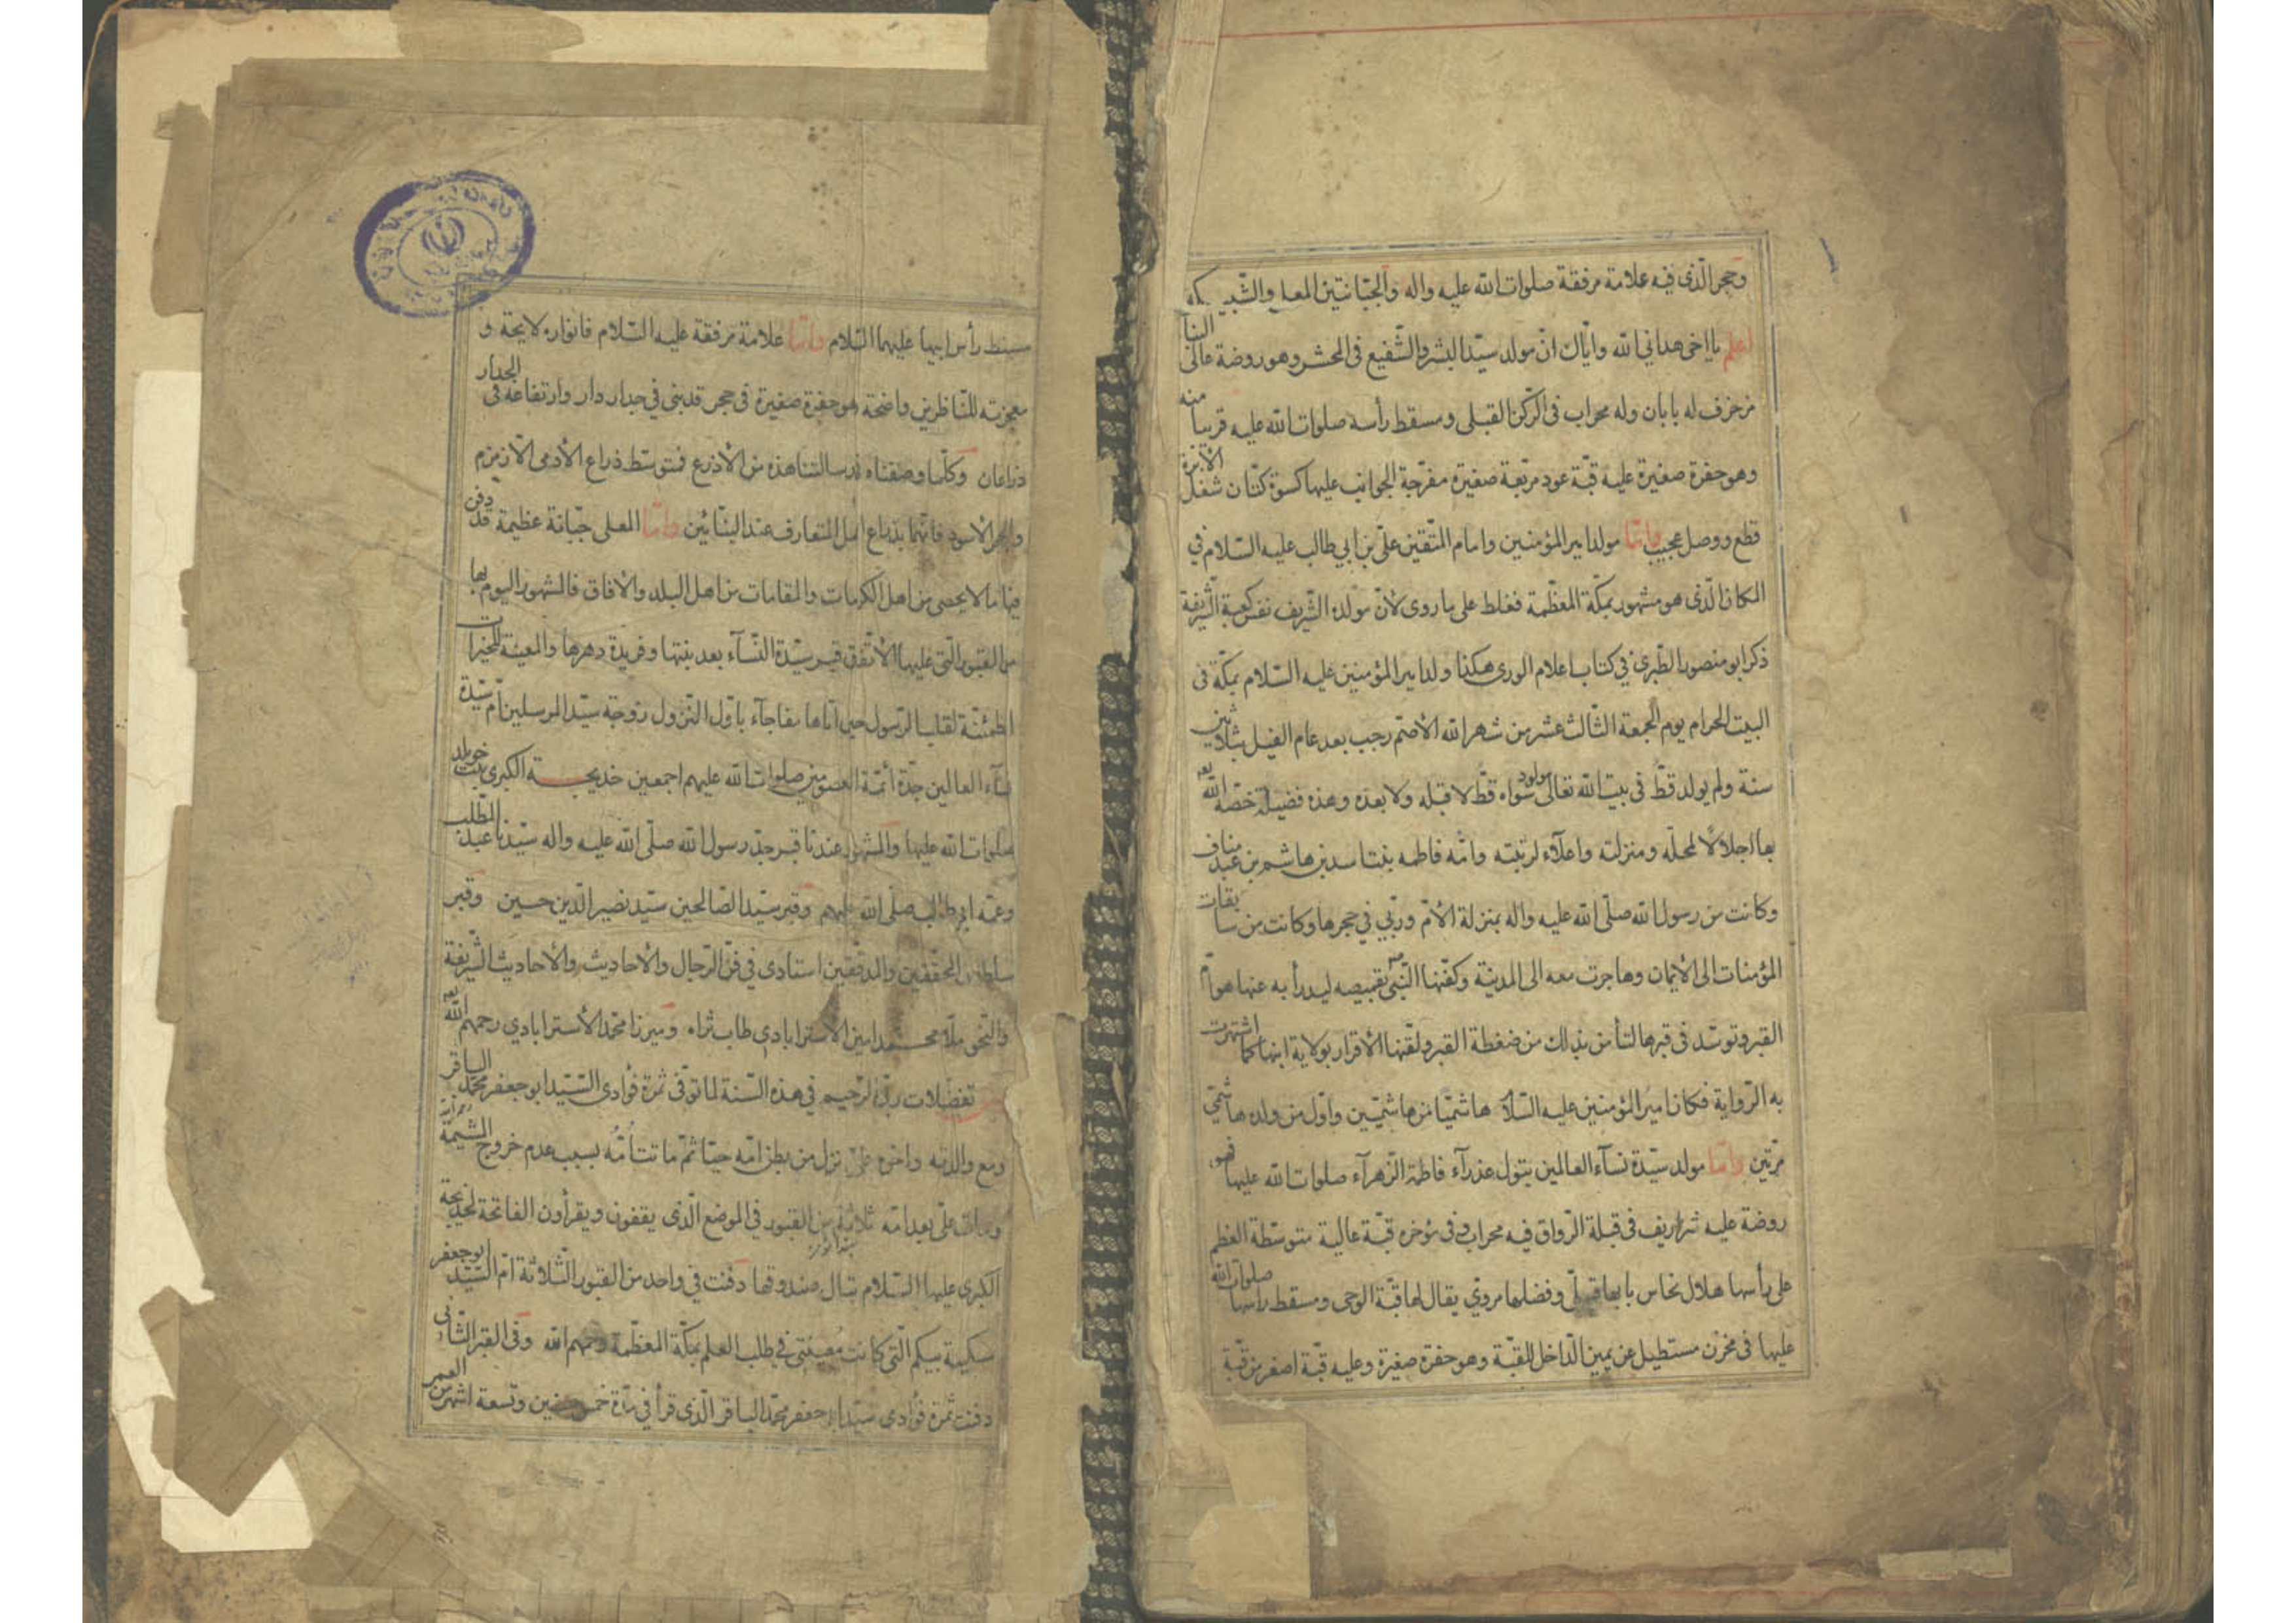 وحجر الّذی فیه علامة مرفقة صلوات الله علیه واله والجبّانتین المعلی والشّبیکه
اعلم یا اخی هدانی الله وایّاك انّ مولد سیّد البشر والشّفیع فی المحشر وهو روضة عالی البنآ
مزخرف له بابان وله محراب فی الرّکن القبلی ومسقط رأسه صلوات الله علیه قریبا منه
وهو حفرة صغیرة علیه قبّة عود مربّعة صغیرة مفرّجة الجوانب علیها کسوة کتّان شغل الأبرة
قطع ووصل عجیب وامّا مولد امیر المؤمنین وامام المتّقین علیّ بن ابی طالب علیه السّلام فی
المکان الّذی هو مشهور بمکّة المعظّمة فغلط علی ما روی لأنّ مولده الشّریف نفس کعبة الشّریفة
ذکر ابو منصور الطّبری فی کتاب اعلام الوری هکذا ولد امیر المؤمنین علیه السّلام بمکّة فی
البیت الحرام یوم الجمعة الثّالث عشر من شهر الله الأصّم رجب بعد عام الفیل بثلاثین
سنة ولم یولد قطّ فی بیت الله تعالی مولود سواه قطّ لا قبله ولا بعده وهذه فضیلة خصّه الله
بها اجلالاً لمحلّه ومنزلته واعلآء لرتبته وامّه فاطمه بنت اسد بن هاشم بن عبد مناف
وکانت من رسول الله صلّی الله علیه واله بمنزلة الأمّ وربّی فی حجرها وکانت من سابقات
المؤمنات الی الأیمان وهاجرت معه الی المدینة وکفّنها النّبیّ بقمیصه لیدرأ به عنها هوامّ
القبر وتوسّد فی قبرها لتأمن بذالك من ضغطة القبر ولقّنها الأقرار بولایة ابنها کما اشتهرت
به الرّوایة فکان امیر المؤمنین علیه السّلآ هاشمیّا من هاشمیّین واوّل من ولده هاشمیّ
مرّتین وامّا مولد سیّدة نسآء العالمین بتول عذرآء فاطمة الزّهرآء صلوات الله علیها فهو
روضة علیه شراریف فی قبلة الرّواق فیه محراب وفی مؤخره قبّة عالیة متوسّطة العظم
علی رأسها هلال نحاس بابها قبلیّ وفضلها مرویّ یقال لها قبّة الوحی ومسقط رأسها صلوات الله
علیها فی مخزن مستطیل عن یمین الدّاخل للقبّة وهو حفرة صغیرة وعلیه قبّة اصغر من قبّة
مسقط رأس ابیها علیهما السّلام وامّا علامة مرفقة علیه السّلام فانواره لایحة و
معجزته للنّاظرین واضحة هو حفرة صغیرة فی حجر قد بنی فی جدار دار وارتفاعه فی الجدار
ذراعان وکلّما وصفناه فی رسالتنا هذه من الأذرع فمتوسّط ذراع الأدمی الّا زمزم
والحجر الأسود فانّهما بذراع المتعارف عند البنّائین وامّا المعلی جبّانة عظیمة قد دفن
فیها ما لا یحصی من اهل الکرمات والمقامات من اهل البلد والأفاق فالشهور الیوم بها
من القبور الّتی علیها الأتّفق قبر سیّدة النّسآء بعد بنتها وفریدة دهرها والمعینة للخیرات
المطمئنّة لقلب الرّسول حین اتاها مفاجآء باوّل النّزول زوجة سیّد المرسلین امّ سیّدة
نسآء العالین جدّة أئمّة المعصومین صلوات الله علیهم اجمعین خدیجة الکبری بنت خویلد
صلوات الله علیها والمشهور عندنا قبر جدّ رسول الله صلّی الله علیه واله سیّدنا عبد المطّلب
وعمّه ابی طالب صلّی الله علیهم وقبر سیّد الصّالحین سیّد نصیر الدّین حسین وقبر
سلطان المحقّقین والمدقّقین استادی فی فنّ الرّجال والأحادیث والأحادیث الشّریفة
والنّحو ملّا محمّد امین الأسترابادی طاب ثراه ومیرزا محمّد الأسترابادی رحمهم الله
تفضّلات ربّه الرّحیم فی هذه السّنة لما توفّی ثمرة فؤادی السّیّد ابو جعفر محمّد الباقر
ومع والدته واخوه علیّ نزل من بطن امّه حیّا ثمّ ماتت امّه بسبب عدم خروج المشیمة
ومات علیّ بعد امّه ثلاثة من القبور فی الموضع الّذی یقفون ویقرأون الفاتحة لخدیجة
الکبری علیها السّلام صندوقها دفنت فی واحد من القبور الثّلاثة امّ السّیّد ابو جعفر
سکینة بیکم الّتی کانت معینتی فی طلب العلم بمکّة المعظّمة رحمهم الله وفی القبر الثّانی
دفنت ثمرة فؤادی سیّد ابو جعفر محمّد الباقر الّذی قرأ فی مدّة خمس سنین وتسعة اشهر من العمر